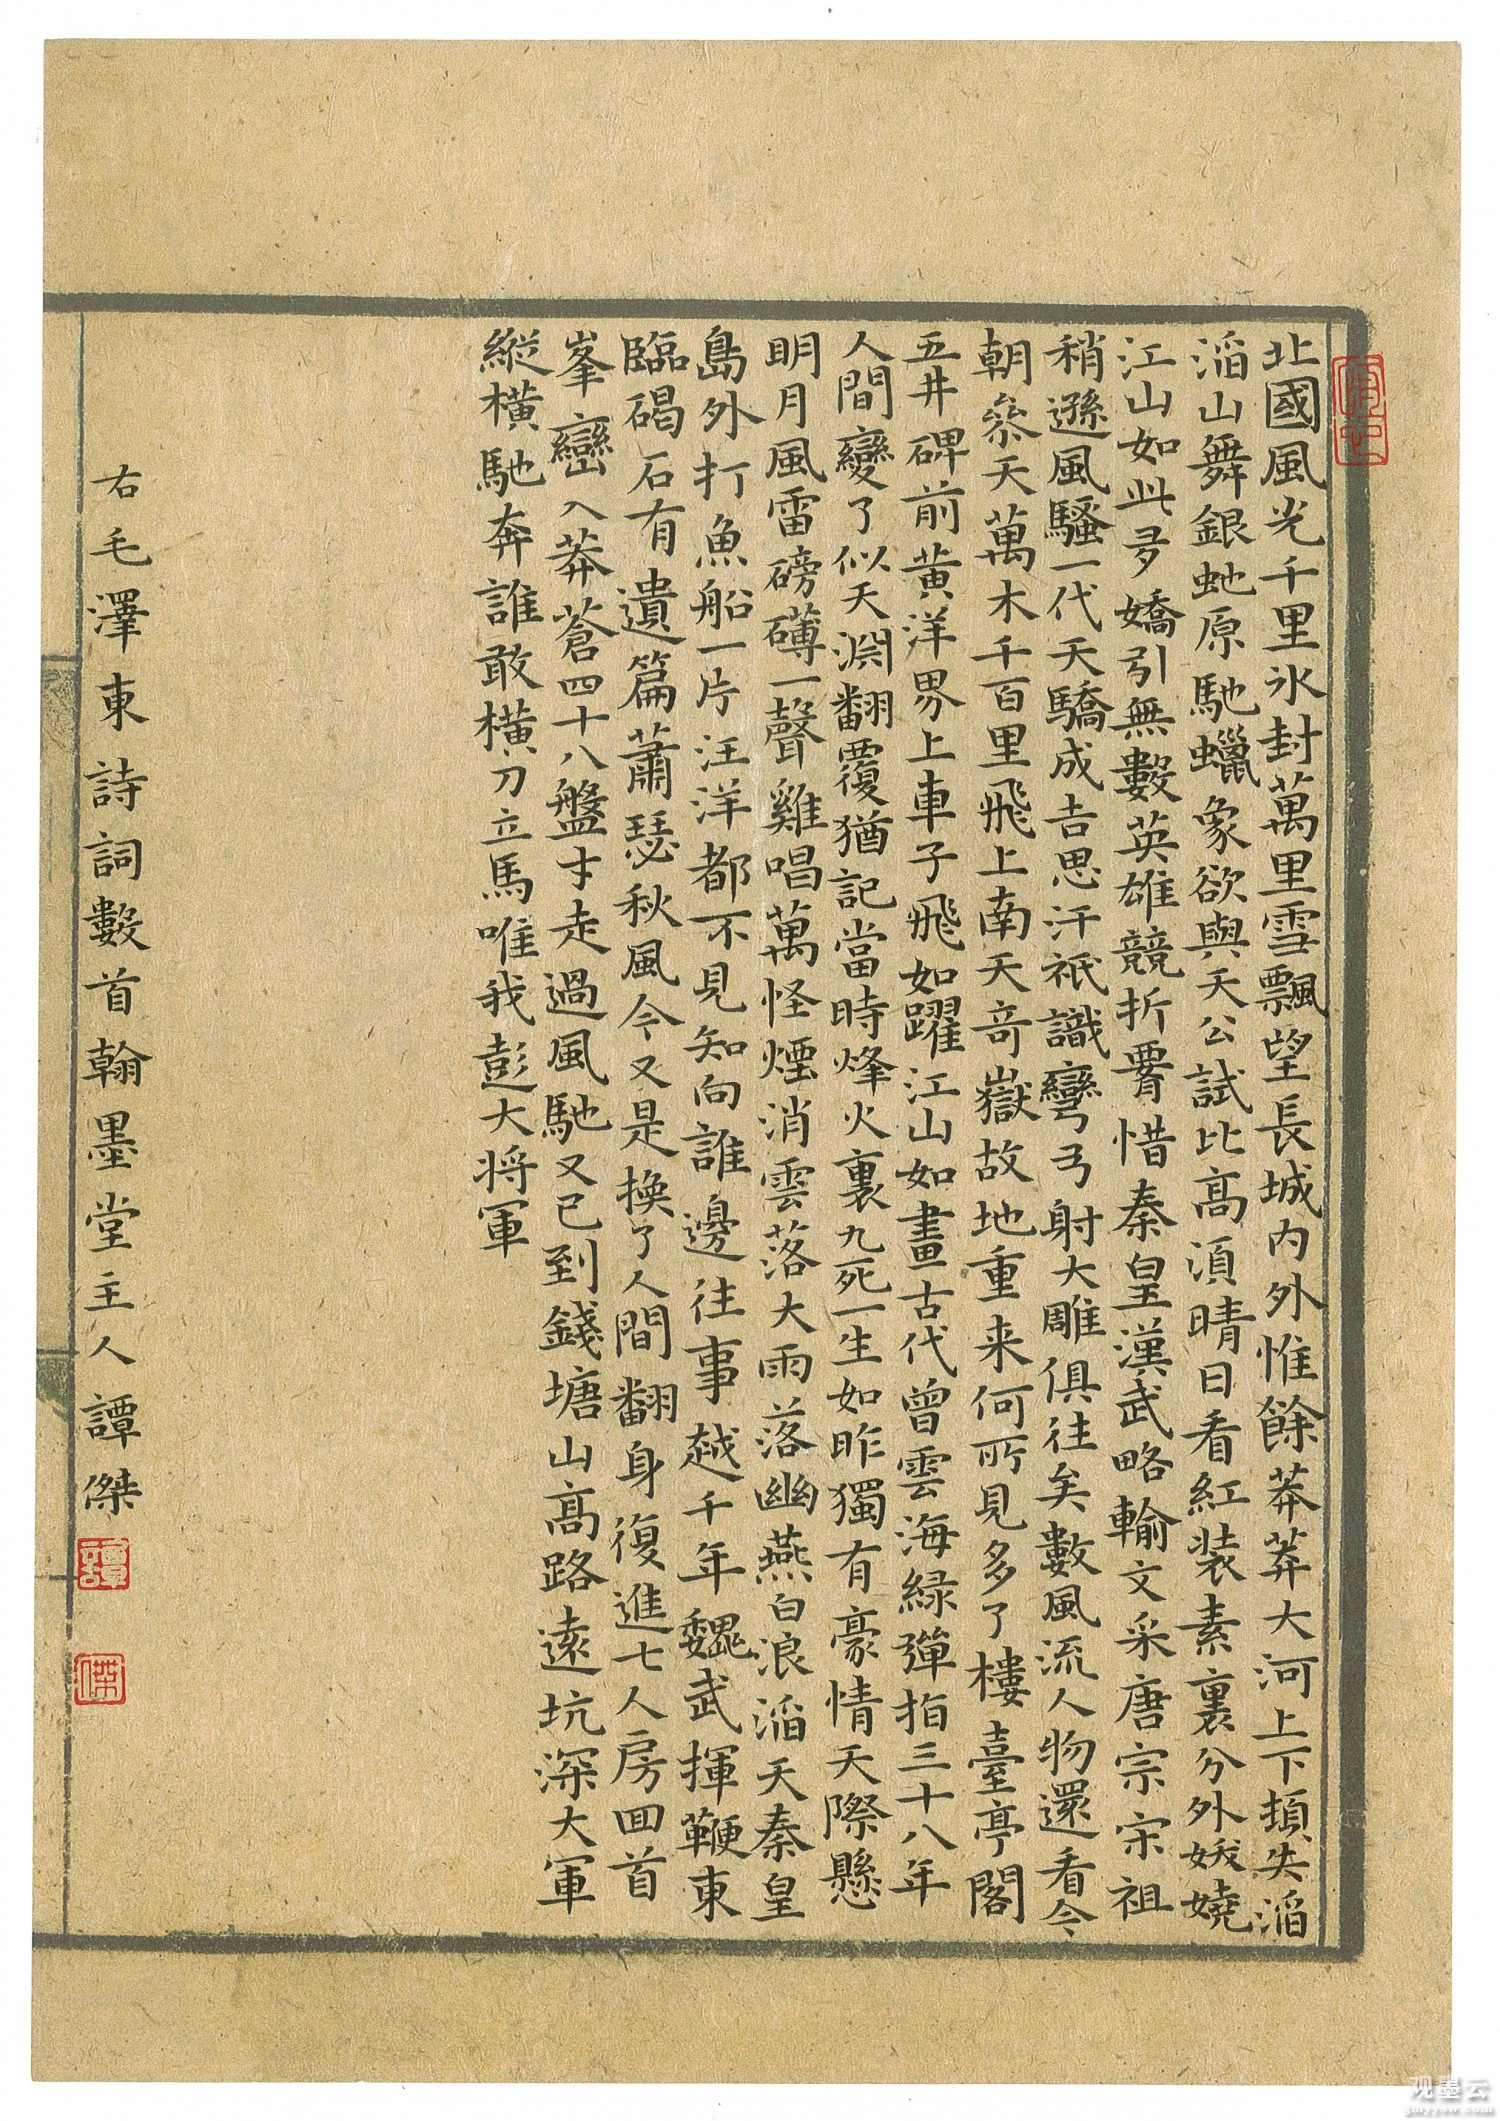 北國風光千里氷封萬里雪飄望長城内外惟餘莽莽大河上下頓失滔
滔山舞銀虵原馳蠟象欲與天公試比高須晴日看紅装素裹分外妖嬈
江山如此多嬌引無數英雄競折要惜秦皇漢武略輸文采唐宗宋祖
稍遜風騷一代天驕成吉思汗祇識彎弓射大雕俱往矣數風流人物還看今
朝叅天萬木千百里飛上南天竒嶽故地重来何所見多了樓臺亭閣
五井碑前黄洋界上車子飛如躍江山如畫古代曾雲海緑彈指三十八年
人間變了似天淵翻覆猶記當時烽火裏九死一生如昨獨有豪情天際懸
明月風雷磅礴一聲雞唱萬怪煙消雲落大雨落幽燕白浪滔天秦皇
島外打魚船一片汪洋都不見知向誰邊往事越千年魏武揮鞭東
臨碣石有遺篇蕭瑟秋風今又是換了人間翻身復進七人房回首
峯巒入莽蒼四十八盤才走過風馳又已到錢塘山高路遠坑深大軍
縱橫馳奔誰敢横刀立馬唯我彭大将軍
右毛澤東詩詞數首翰墨堂主人譚傑
譚
傑
观墨云
gmyyow.com